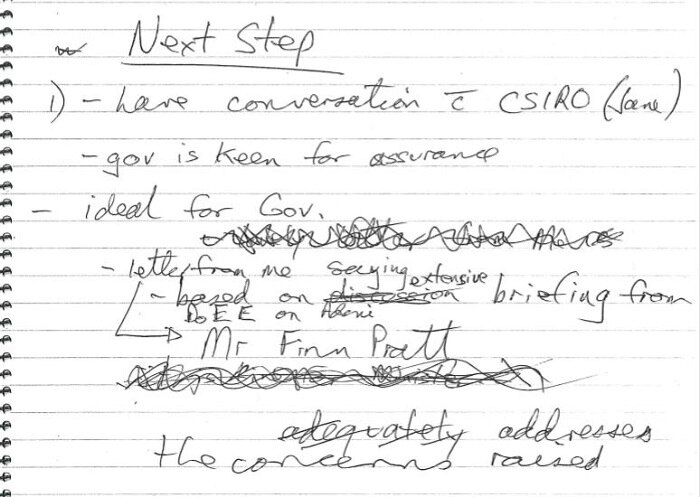 Next Step
1) - have conversation c̄ CSIRO (Jane)
- gov is keen for assurance
- ideal for Gov.
- letter from me saying extensive
- based on discussion briefing from
DoEE on Adani
Mr Finn Pratt
adequately addresses
the concerns raised